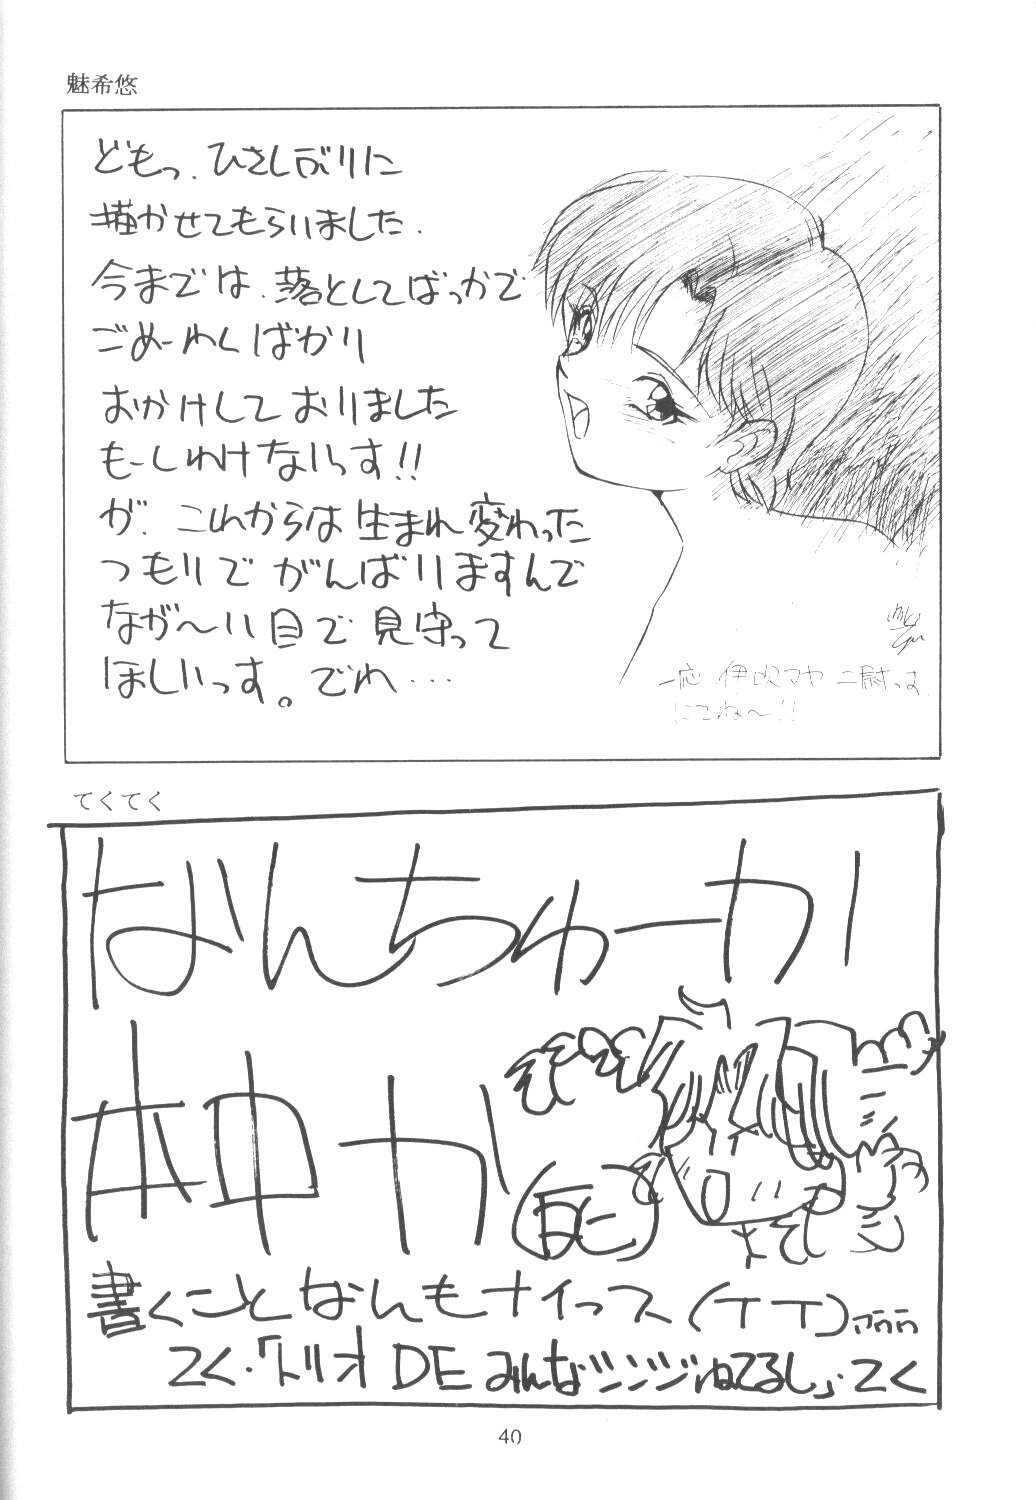 魅希悠
どもっ、ひさしぶりに
描かせてもらいました.
今までは、落としてばっかで
ごめーわくばかり
おかけしておりました
もーしわけないっす!!
が、これからは生まれ変わった
つもりでがんばりますんで
なが〜い目で見守って
ほしいっす。でわ…
一応 伊吹マヤ 二尉っす.
にてね〜!!
てくてく
なんちゅーか
本中か
書くことなんもナイっス(TT)
てく・「トリオ DE みんな
てるし」・てく
40